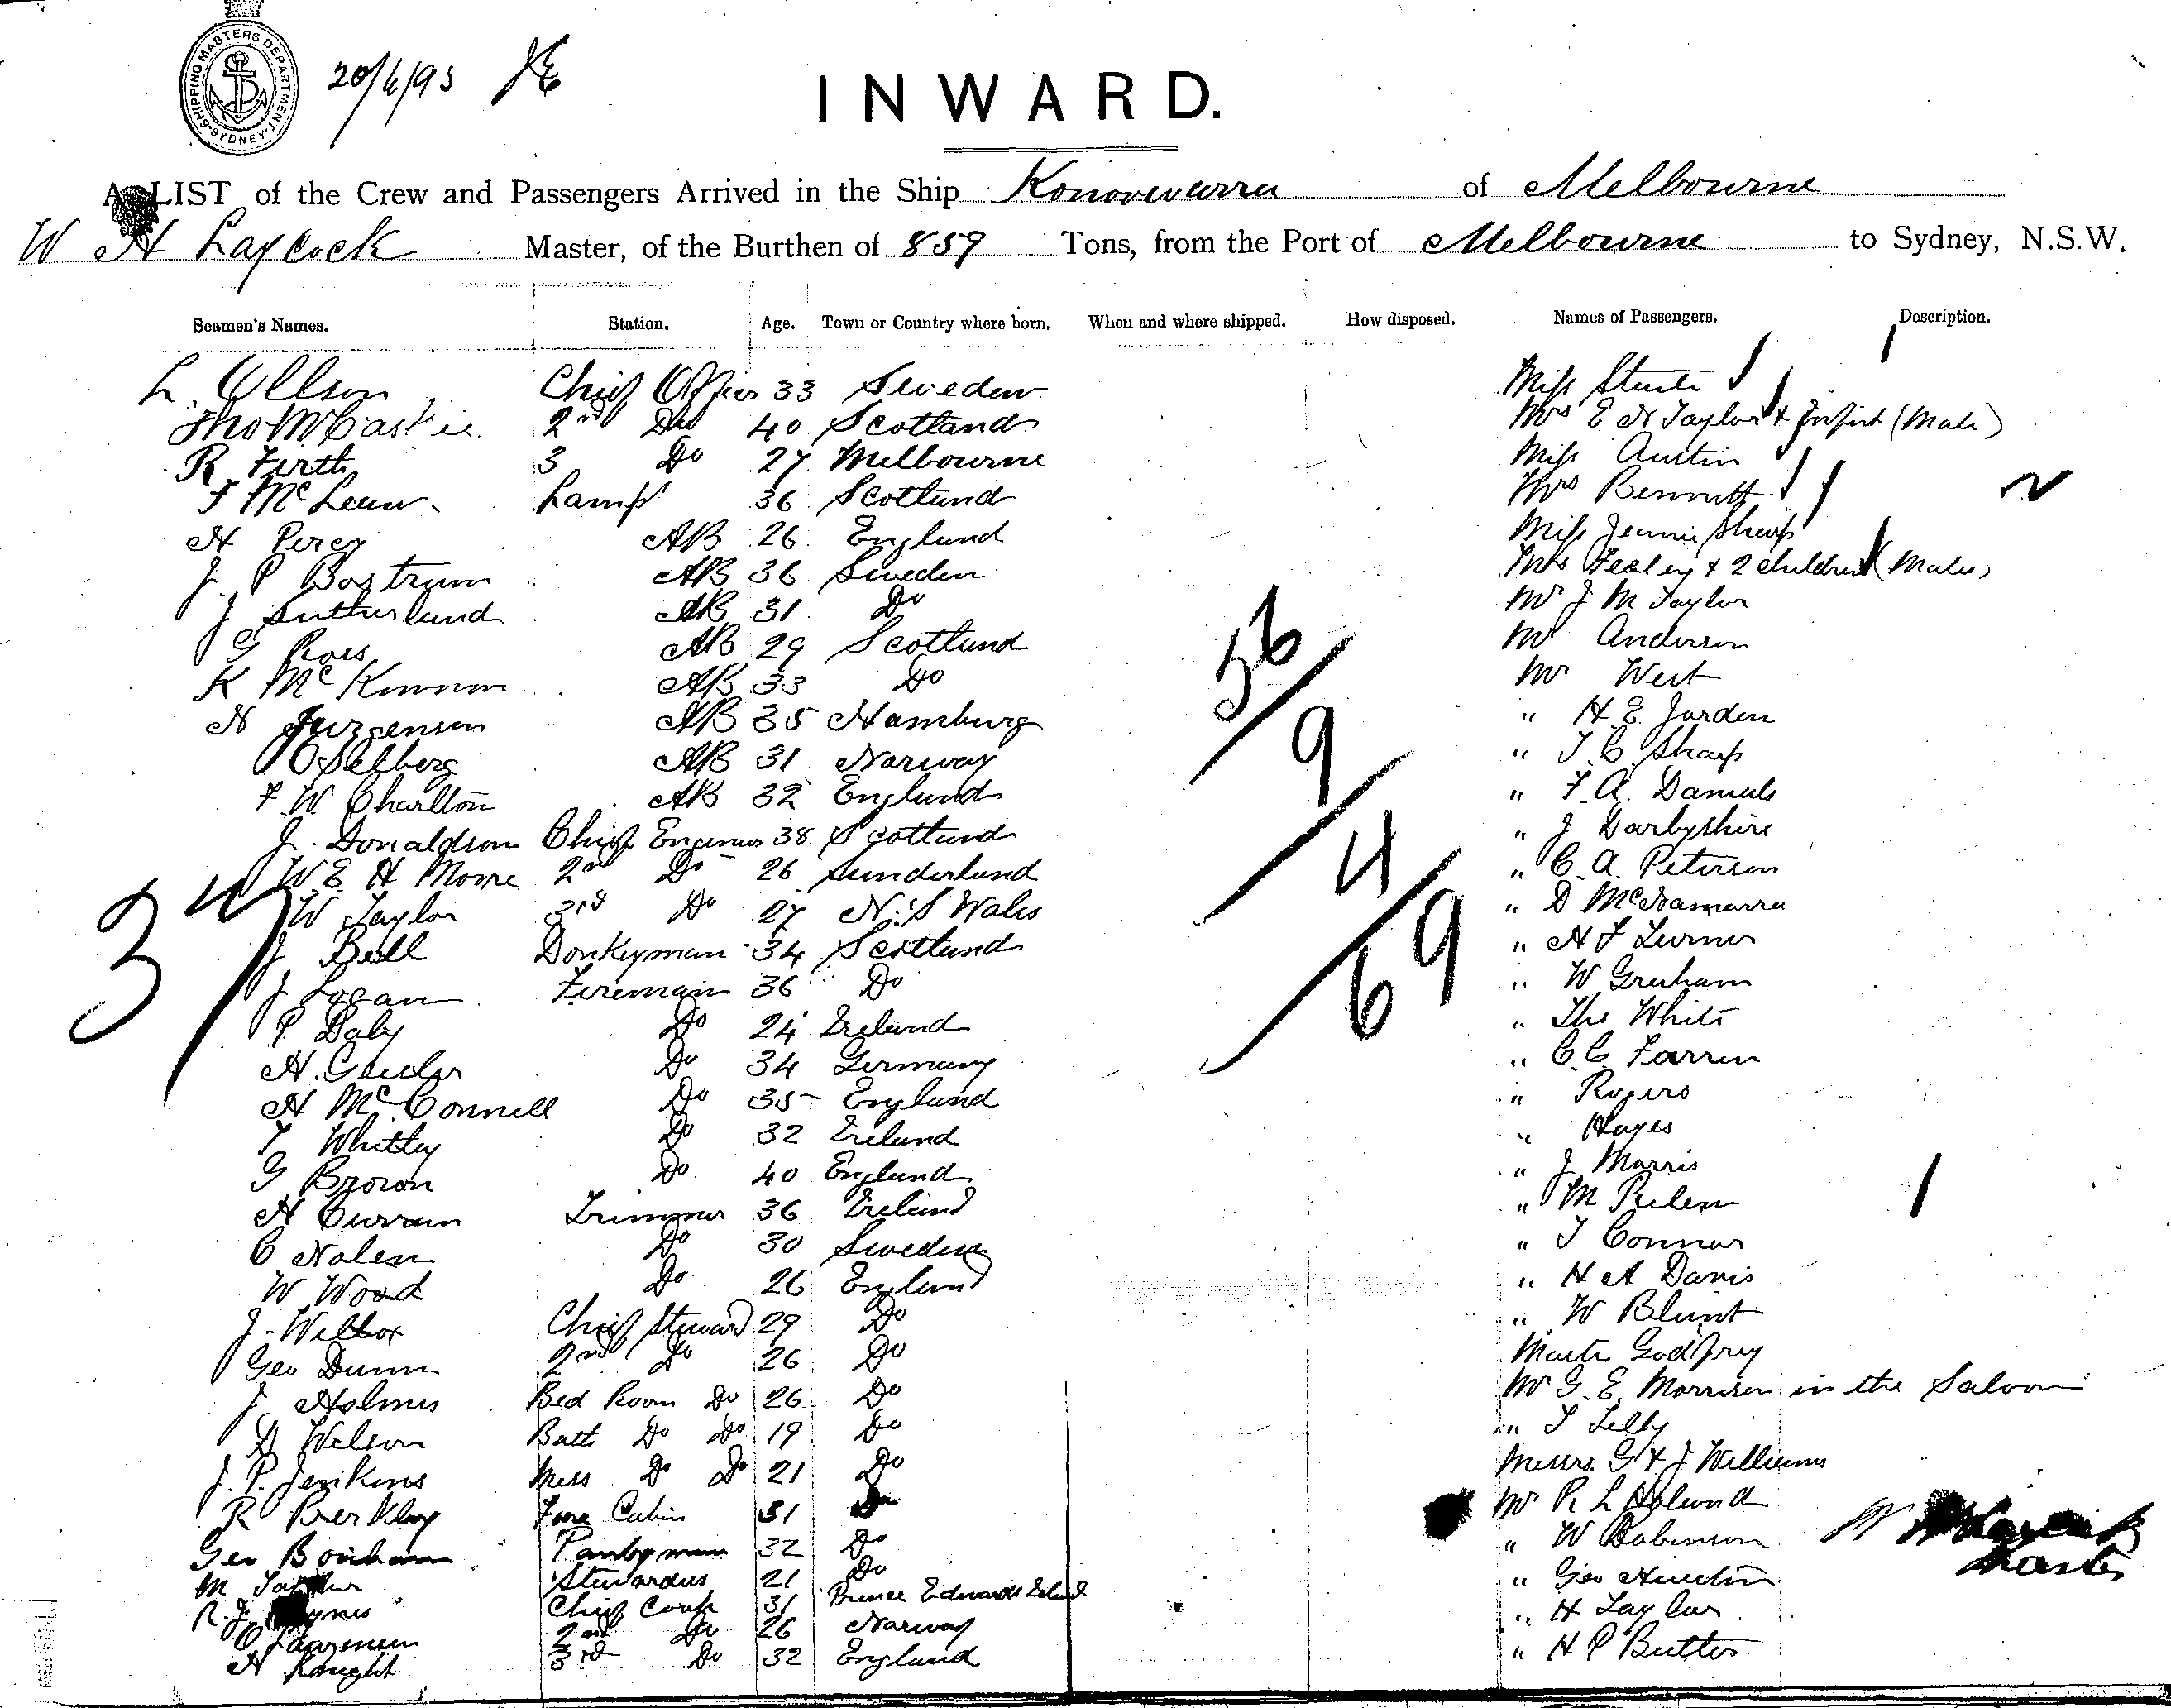 SHIPPING MASTERS DEPARTMENT
SYDNEY
20/6/93
INWARD.
A LIST of the Crew and Passengers Arrived in the Ship Konoowarra of Melbourne
W H Laycock Master, of the Burthen of 859 Tons, from the Port of Melbourne to Sydney, N.S.W.
Seamen's Names. Station. Age. Town or Country where born. When and where shipped. How disposed. Names of Passengers. Description.
L. Ollson Chief Officer 33 Sweden Miss
Tho McCaskie 2nd Do 40 Scotland Mrs E H Taylor & Infant (Male)
R Firth 3 Do 27 Melbourne Miss Austin
F McLean Lamps 36 Scotland Mrs Bennett
H Percy AB 26 England Miss Jeannie Sharp
J. P Bostrum AB 36 Sweden Mrs Fealey & 2 children (Males)
J Sutherland AB 31 Do Mr J M Taylor
G Ross AB 29 Scotland Mr Anderson
K McKinnon AB 33 Do Mr West
N Jurgensen AB 35 Hamburg " H. E. Jarden
O Selberg AB 31 Norway " T. C. Sharp
F. W. Charlton AB 32 England " F. A. Daniels
J. Donaldson Chief Engineer 38 Scotland " J Darbyshire
W. E. H Moore 2nd Do 26 Sunderland " C. A. Petersen
W Taylor 3rd Do 27 N. S Wales " D McNamarra
J Bell Donkeyman 34 Scotland " H F Turner
J Logan Fireman 36 Do " W Graham
P Daly Do 24 Ireland " Tho White
H. Do 34 Germany " C. C. Farren
H McConnell Do 35 England " Rogers
T Whitley Do 32 Ireland " Hayes
G Brown Do 40 England " J Morris
H Curran Trimmer 36 Ireland " M
C Nolen Do 30 Sweden " T Connor
W Wood Do 26 England " H A Davis
J. Wilcox Chief Steward 29 Do " W Blunt
Geo Dunn 2nd Do 26 Do Master Godfrey
J. Holmes Bed Room Do 26 Do Mr G. E. Morrison in the Saloon
D Wilson Bath Do Do 19 Do " T Tilly
J. P. Jenkins Mess Do Do 21 Do Messrs. G & J Williams
R Fore Cabin 31 Do Mr R L Holund
Geo Pantryman 32 Do " W Robinson
M Stewardess 21 Do " Geo
R. J. Chief Cook 31 Prince Edwards Island " H Taylor
O 2nd Do 26 Norway " H P Butter
H Knight 3rd Do 32 England
37
56
9
4
69
W H Laycock
Master